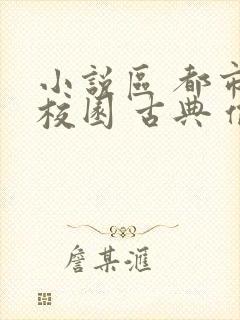 小說區 都市
校園 古典
詹某滙